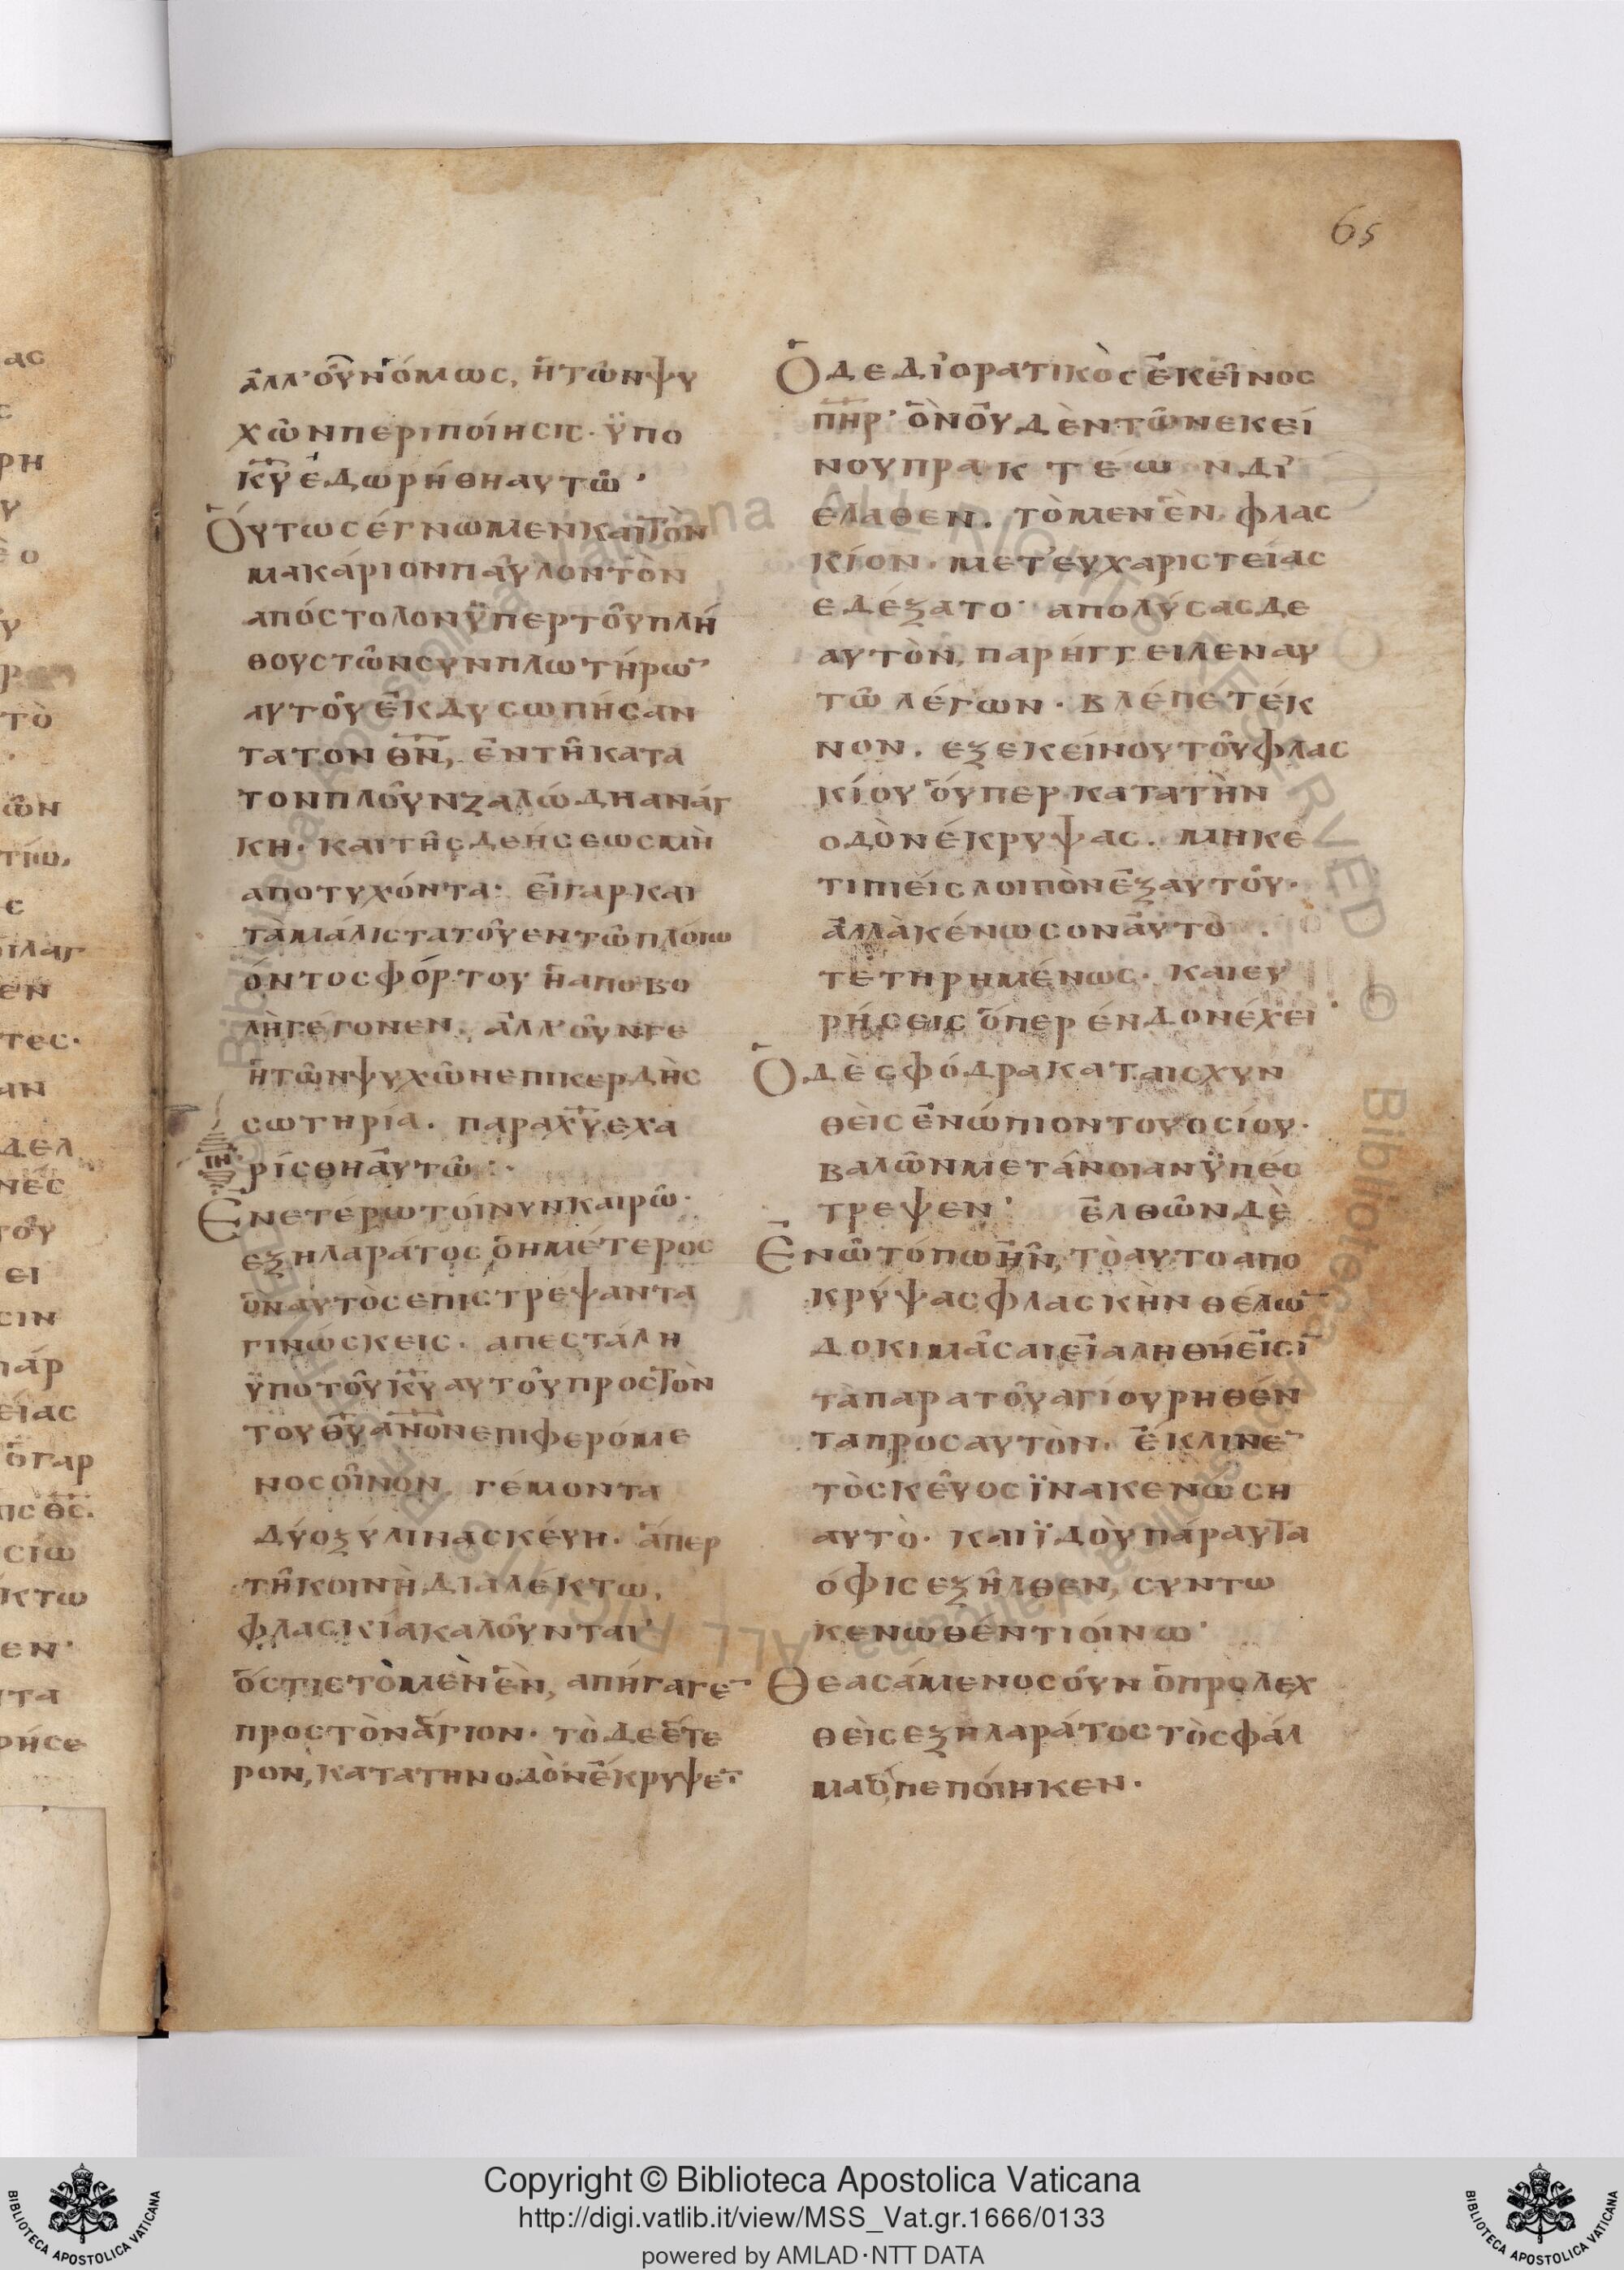 65
ἀλλ' οὖν ὅμως, ἡ τῶν ψυ
χῶν περιποίησις· ϋπο
κ̅υ̅ ἐδωρήθη αυτῶ·
Ὅυτως έγνωμεν και τὸν
μακάριον παῦλον τὸν
απόστολον ϋπερ τοῦ πλή
θους τῶν συνπλωτήρω̅
αυτοῦ ἐκδυσωπήσαν
τα τον θ̅ν̅, ἐν τῆ κατα
τον πλοῦν ζαλώδη ανάγ
κη· και τῆς δεήσεως μὴ
αποτυχόντα· εἰ γαρ και
τὰ μάλιστα τοῦ εν τῶ πλόιω
όντος φόρτου ἡ αποβο
λὴ γέγονεν. ἀλλ' οῦν γε
ἡ τῶν ψυχῶν επικερδὴς
σωτηρία. παρα χ̅υ̅ εχα
ρίσθη ἀυτῶ:·
ΙΗ
Εν ετέρω τόινυν καιρῶ·
εξηλαράτος ὁ ημέτερος
ὃν αυτὸς επιστρεψαντα
γινώσκεις· απεστάλη
ϋπο τοῦ κ̅υ̅ αυτοῦ προς τὸν
του θ̅υ̅ α̅ν̅ο̅ν̅ επιφερόμε
νος οἶνον γέμοντα
δύο ξύλινα σκέυη· ἅπερ
τῆ κοινὴ διαλέκτω,
φλασκία καλοῦνται·
ὅστις τὸ μὲν ἓν, απήγαγε̅
προς τὸν ἅγιον· τὸ δε ἕτε
ρον, κατα την οδὸν ἐκρυψε̅·
Ὁ δε διορατικὸς ἐκεῖνος
π̅η̅ρ̅· ὃν οὐδὲν τῶν εκεί
νου πρακτέων δι
έλαθεν. τὸ μεν ἓν, φλας
κίον. μετ' ευχαριστείας
εδέξατο· απολύσας δε
αυτὸν, παρήγγειλεν αυ
τῶ λέγων· βλέπε τέκ
νον. εξ εκείνου τοῦ φλας
κίου ὅυπερ κατα τὴν
οδὸν έκρυψας. μηκέ
τι πιείς λοιπὸν ἐξ αυτοῦ·
ἀλλὰ κένωσον ἀυτὸ
τετηρημένως· και ευ
ρήσεις ὅπερ ένδον έχει·
Ὁ δὲ σφόδρα καταισχυν
θεὶς ἐνώπιον του οσίου·
βαλῶν μετάνοιαν ϋπέσ
τρεψεν· ἐλθῶν δὲ
Ἐν ῶ τόπω ἦν, τὸ αυτο απο
κρύψας φλασκὴν θέλω̅
δοκιμᾶσαι εἰ αληθή ἐισι
τὰ παρα τοῦ αγίου ρηθέν
τα προς αυτὸν· ἐκλινε̅
τὸ σκεῦος ϊνα κενώση
αυτὸ· και ϊδοὺ πάραυτα
όφις εξῆλθεν, συν τω
κενωθέντι οίνω·
Θεασάμενος οῦν ὁ προλεχ
θεὶς εξηλαράτος τὸ σφάλ
μα ὃ πεπόιηκεν·
Copyright © Biblioteca Apostolica Vaticana
http://digi.vatlib.it/view/MSS_Vat.gr.1666/0133
powered by AMLAD·NTT DATA
BIBLIOTECA APOSTOLICA VATICANA
BIBLIOTECA APOSTOLICA VATICANA